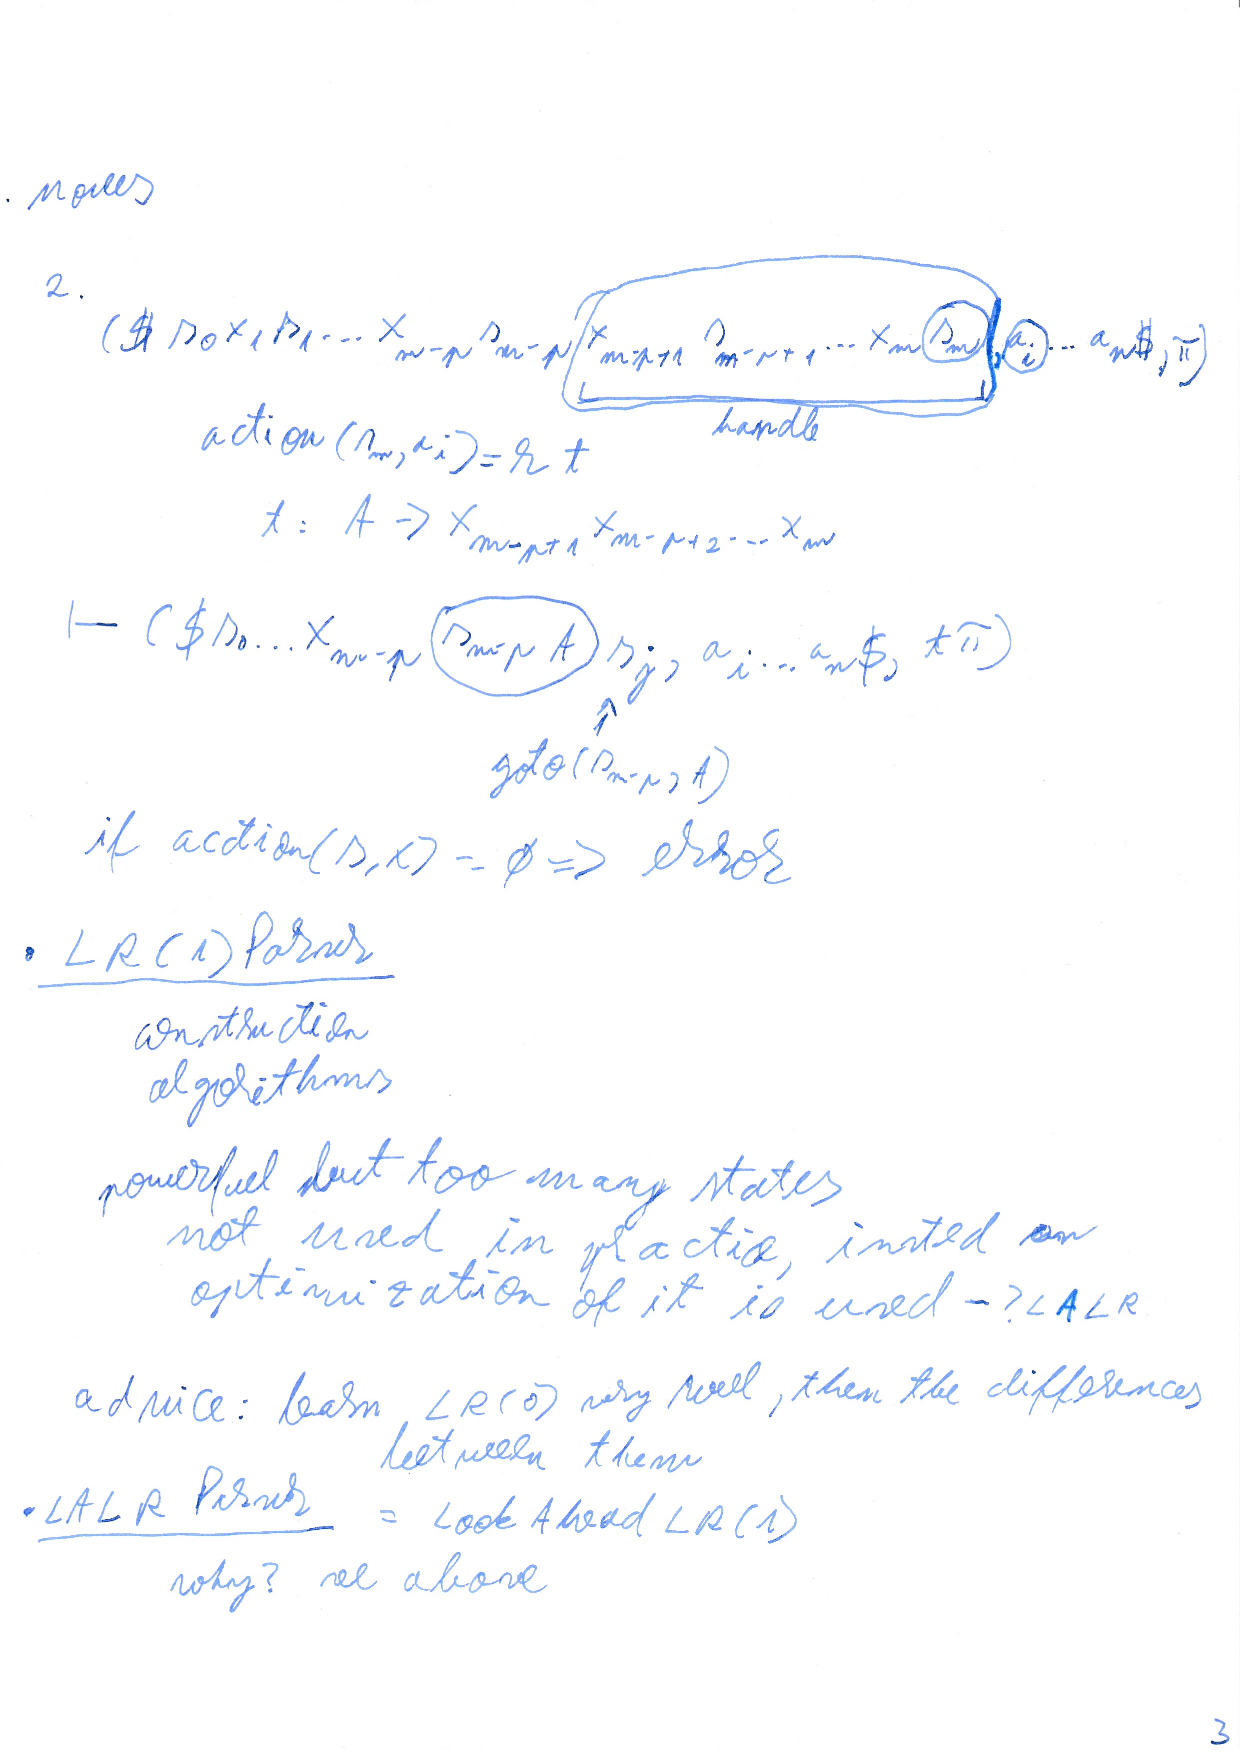 . moves
2.
($ s0 x1 s1 ... xm-p sm-p xm-p+1 sm-p+1 ... xm sm, ai ... an$, π)
handle
action(sm, ai) = r t
t: A -> xm-p+1 xm-p+2 ... xm
⊢ ($ s0 ... xm-p sm-p A sj, ai ... an$, tπ)
↑
goto(sm-p, A)
if acction(s, x) = ∅ => error
• LR(1) Parser
construction
algorithms
powerful but too many states
not used in practice, insted an
optimization of it is used -? LALR
advice: learn LR(0) very well, then the differences
between them
• LALR Parser = Look Ahead LR(1)
why? see above
3